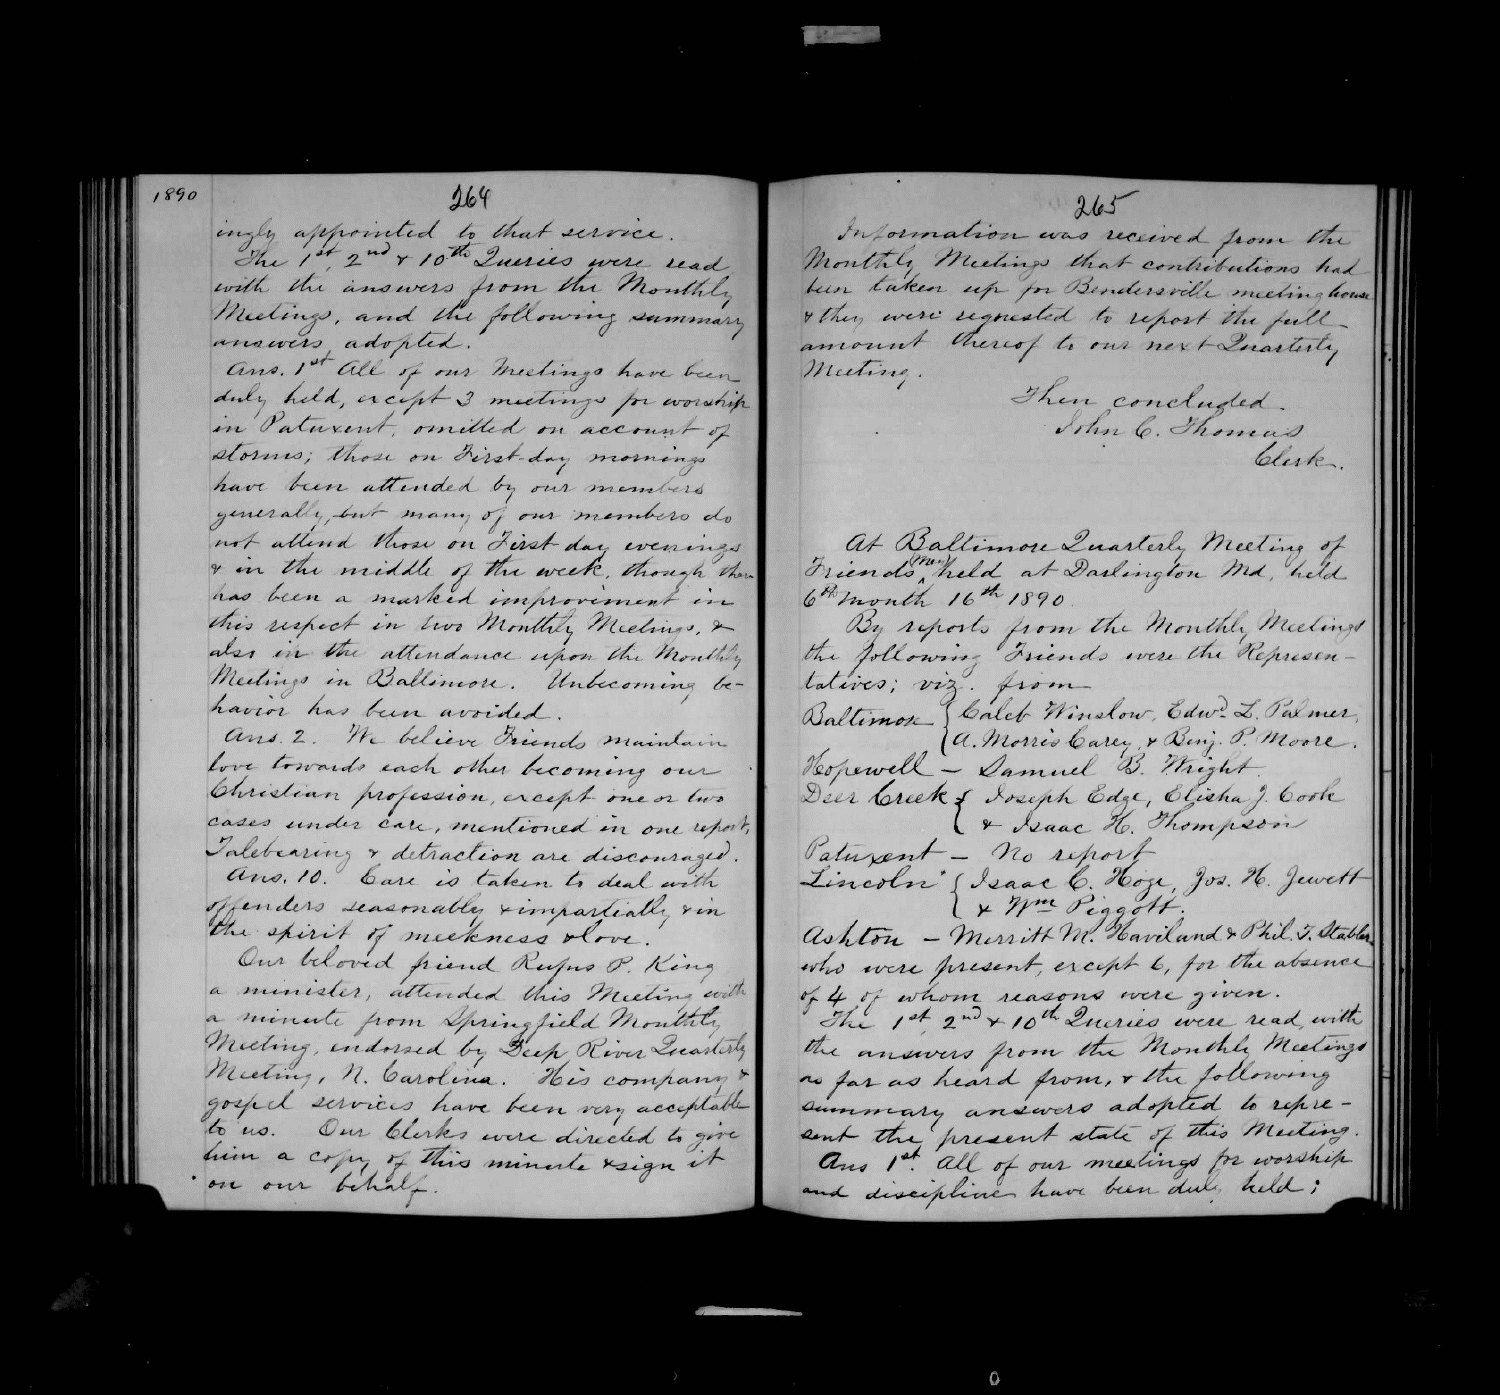 1890
264
ingly appointed to that service.
The 1st, 2nd & 10th Queries were read,
with the answers from the Monthly
Meetings, and the following summary
answers adopted.
Ans. 1st All of our Meetings have been
duly held, except 3 meetings for worship
in Patuxent, omitted on account of
storms; those on First-day mornings
have been attended by our members
generally, but many of our members do
not attend those on First day evenings
& in the middle of the week, though there
has been a marked improvement in
this respect in two Monthly Meetings, &
also in the attendance upon the Monthly
Meetings in Baltimore. Unbecoming be-
havior has been avoided.
Ans. 2. We believe Friends maintain
love towards each other becoming our
Christian profession, except one or two
cases under care, mentioned in one report,
Talebearing & detraction are discouraged.
Ans. 10. Care is taken to deal with
offenders seasonably & impartially & in
the spirit of meekness & love.
Our beloved friend Rufus P. King
a minister, attended this Meeting with
a minute from Springfield Monthly
Meeting, endorsed by Deep River Quarterly
Meeting, N. Carolina. His company &
gospel services have been very acceptable
to us. Our Clerks were directed to give
him a copy of this minute & sign it
on our behalf.
265
Information was received from the
Monthly Meetings that contributions had
been taken up for Bendersville meeting house
& they were requested to report the full
amount thereof to our next Quarterly
Meeting.
Then concluded.
John C. Thomas
Clerk.
At Baltimore Quarterly Meeting of
Friends (Men) held at Darlington Md, held
6th month 16th 1890.
By reports from the Monthly Meetings
the following Friends were the Represen-
tatives; viz. from
Baltimore { Caleb Winslow, Edwd. L. Palmer,
A. Morris Carey, & Benj. P. Moore.
Hopewell – Samuel B. Wright.
Deer Creek { Joseph Edge, Elisha J. Cook
& Isaac H. Thompson
Patuxent – No report
Lincoln { Isaac C. Hoge, Jos. H. Jewett
& Wm Piggott.
Ashton – Merritt M. Haviland & Phil. T. Stabler
who were present, except 6, for the absence
of 4 of whom reasons were given.
The 1st, 2nd & 10th Queries were read, with
the answers from the Monthly Meetings
as far as heard from, & the following
summary answers adopted to repre-
sent the present state of this Meeting.
Ans 1st. All of our meetings for worship
and discipline have been duly held;